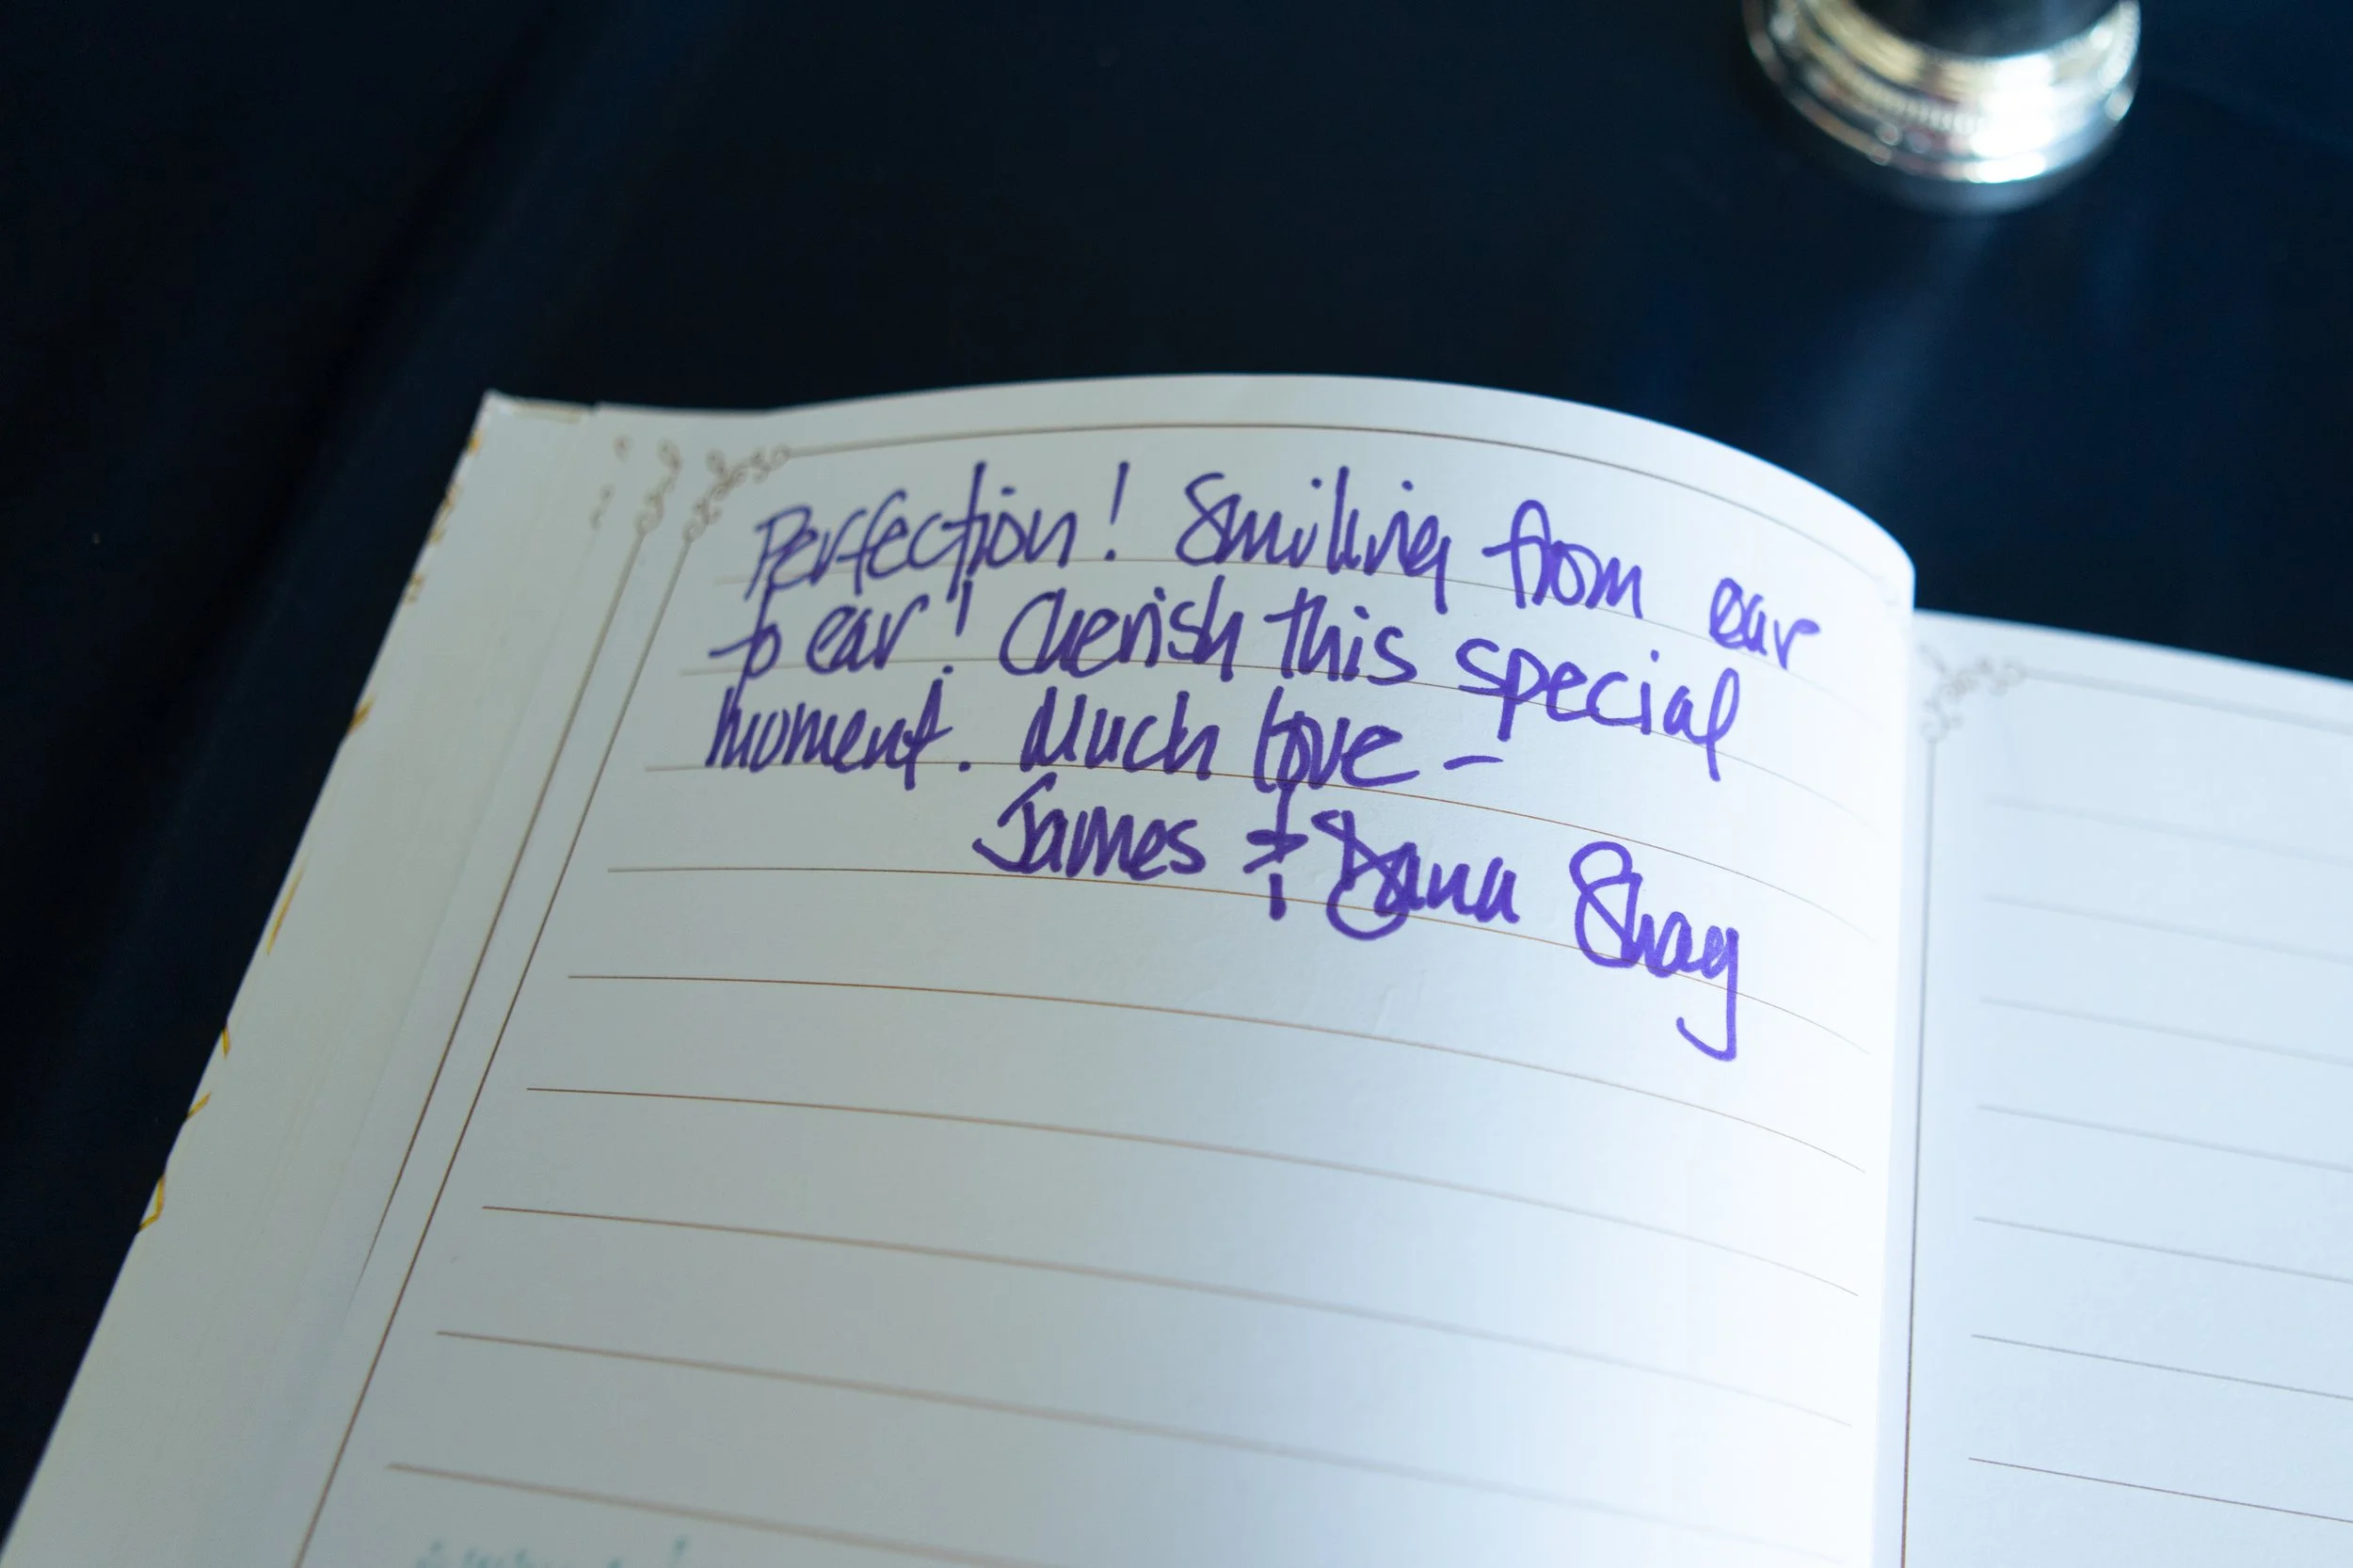 Perfection! Smiling from ear
to ear! Cherish this special
moment. Much love -
James & Dana Shay